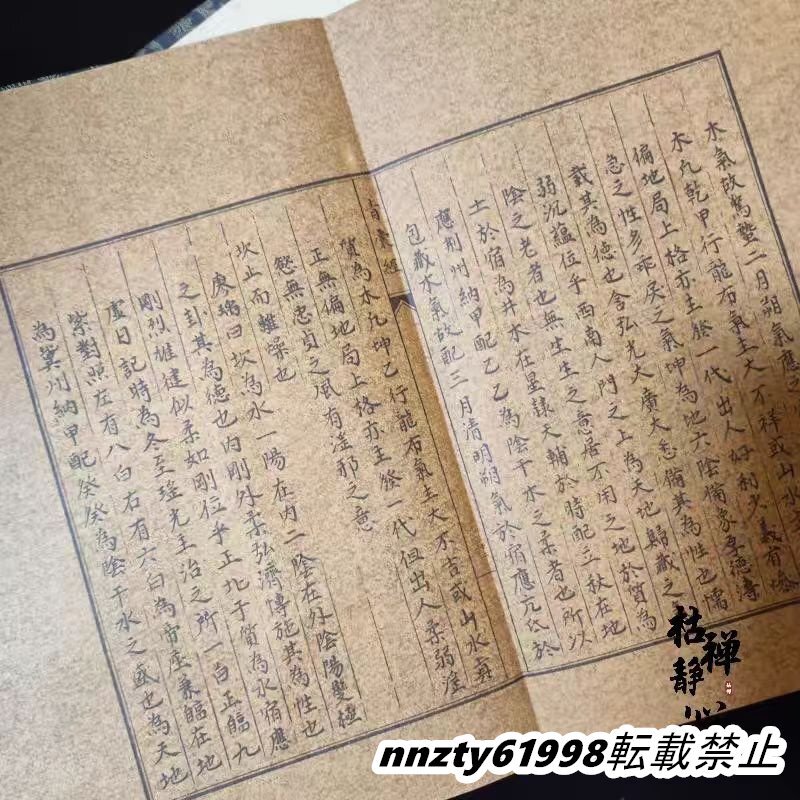 木氣故為蟄二月朔氣應之
木凡乾甲行龍右氣主大不祥或山水
偏地局上格亦主發一代出人好利少義有
急之性多乖戾之氣坤為地六陰備象厚德
載其為德也含弘光大廣大悉備其為性也懦
弱沉蘊位乎西南人門之上為天地歸藏之
陰之老者也無生生之意居不用之地於質為
土於宿為井水在星隷天輔於時配立秋在地
應荊州納甲配乙乙為陰干水之柔者也所以
包藏水氣故配三月清明朔氣於宿應亢氐於
質為水凡坤乙行龍右氣主大不吉或山水氣
正無偏地局上格亦主發一代但出人柔弱淫
慾無忠貞之風有淫邪之意
坎止而離燥也
廖瑀曰坎為水一陽在內二陰在外陰陽
之卦其為德也內剛外柔弘濟博施其為性也
剛烈雄健似柔如剛位乎正北于質為水宿應
虛日記時為冬至瑤光主治之所一白正臨九
紫對照左有八白右有六白為帝座秉臨在地
為冀州納甲配癸癸為陰干水之盛也為天地
青囊經
枯禅静心
nnzty61998転載禁止